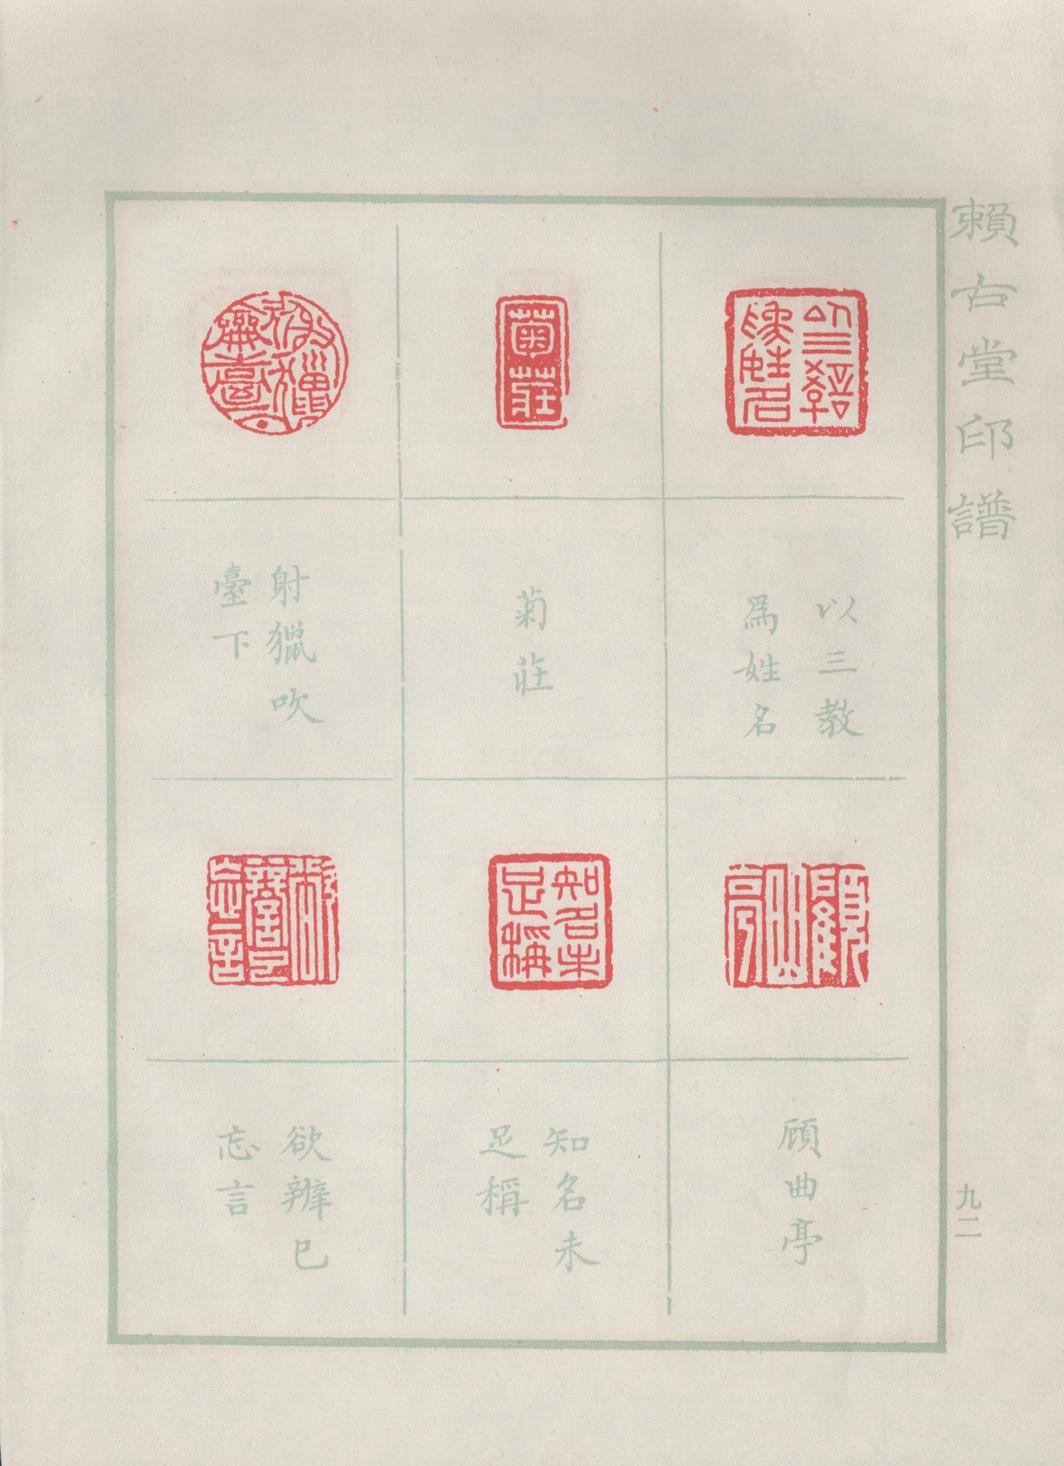 賴古堂印譜
以三教
爲姓名
菊莊
射獵吹
臺下
顧曲亭
知名未
足稱
欲辨已
忘言
九二